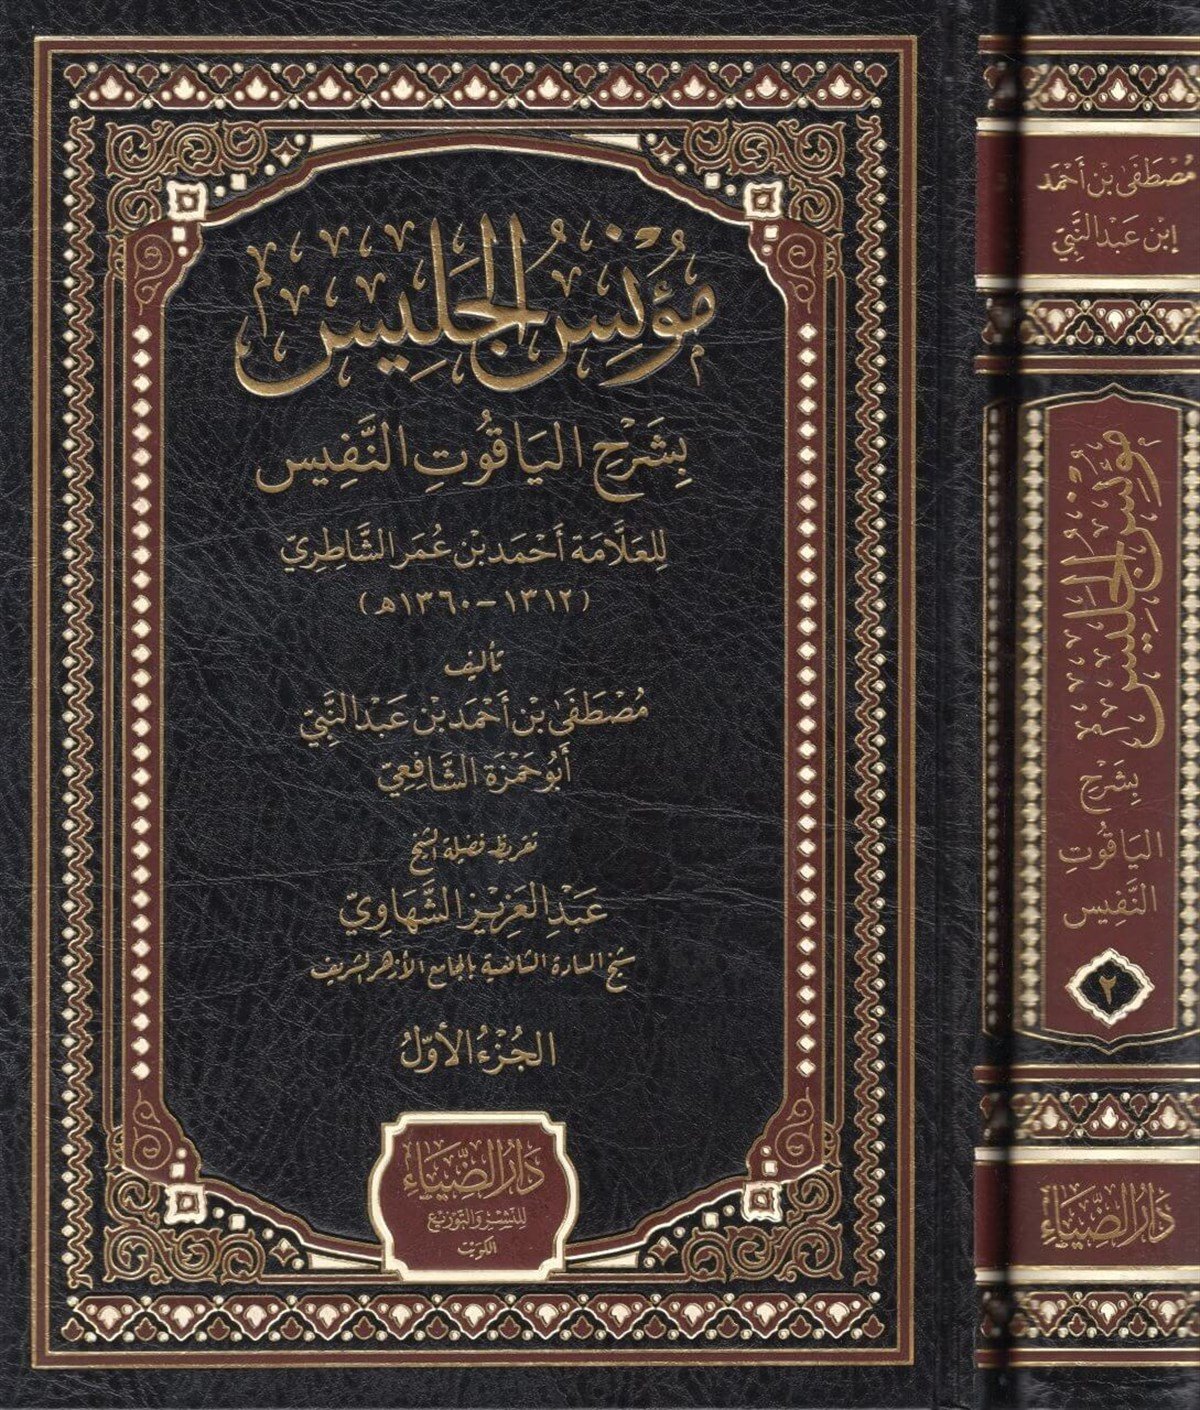 مُؤْنِسُ الجَلِيسِ
بِشَرْحِ اليَاقُوتِ النَّفِيسِ
لِلعَلَّامَة أَحْمَد بْن عُمَر الشَّاطِرِيّ
(١٣١٢ - ١٣٦٠هـ)
تأليف
مُصْطَفَى بْن أَحْمَد بْن عَبْد النَّبِيّ
أَبُو حَمْزَة الشَّافِعِيّ
تقريظ فضيلة الشيخ
عَبْد العَزِيْز الشَّهَاوِيّ
شيخ السادة الشافعية بالجامع الأزهر الشريف
الجُزْءُ الأوّلُ
دَارُ الضِّيَاءِ
لِلنَشْرِ وَالتَّوْزِيْعِ
الكويت
مُصْطَفَى بْن أَحْمَد
إبْن عَبْد النَّبِيّ
مُؤْنِسُ الجَلِيسِ
بِشَرْحِ
اليَاقُوتِ
النَّفِيسِ
٢
دَارُ الضِّيَاءِ